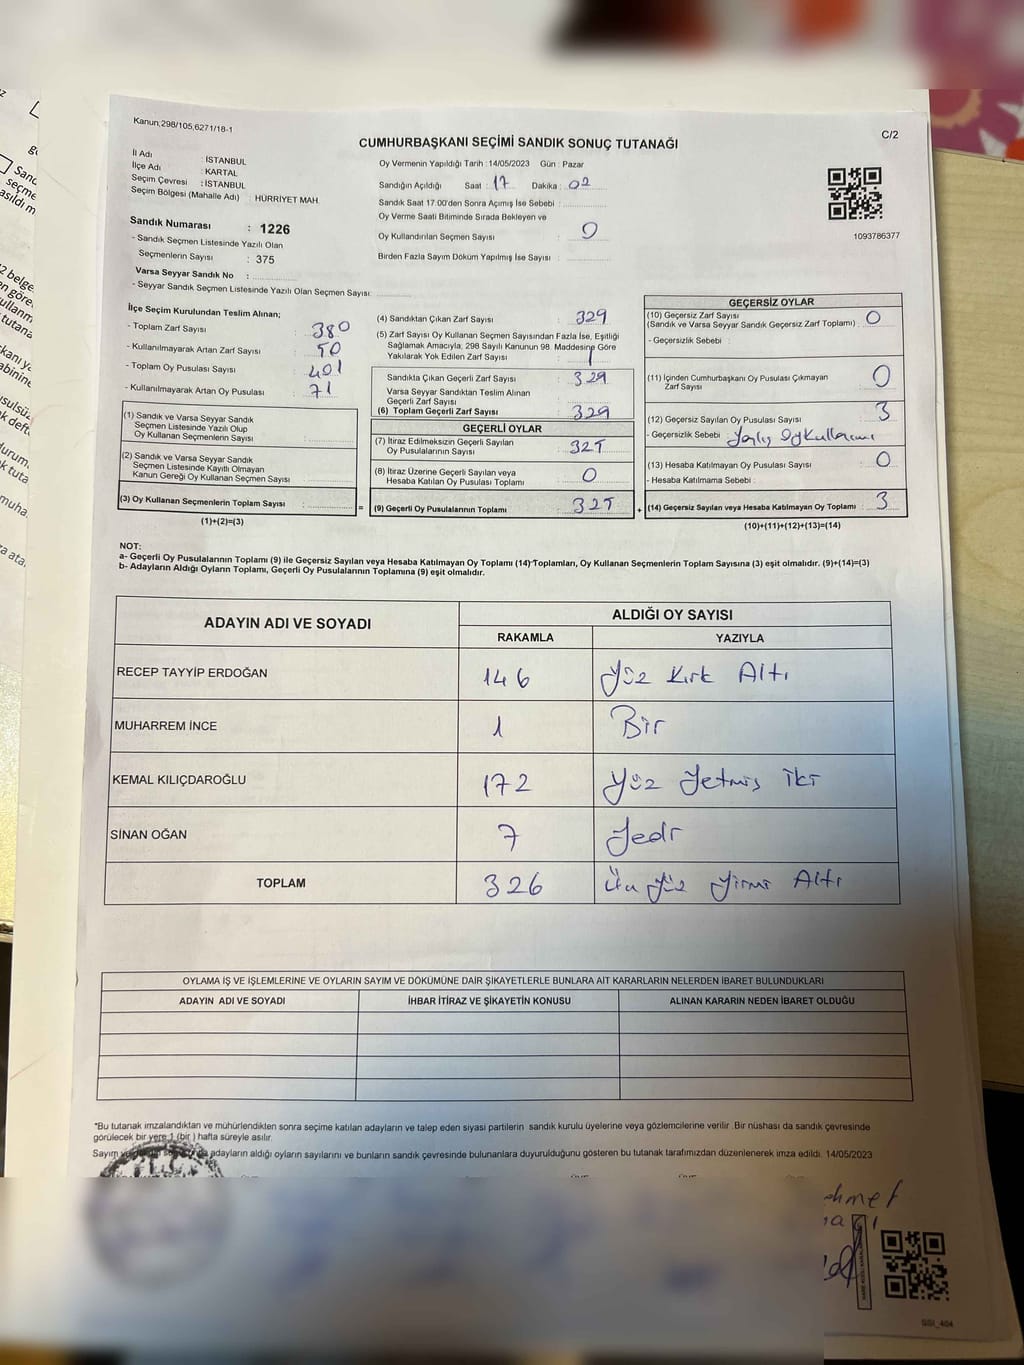 Kanun;298/105,6271/18-1
C/2
CUMHURBAŞKANI SEÇİMİ SANDIK SONUÇ TUTANAĞI
İl Adı : İSTANBUL
İlçe Adı : KARTAL
Seçim Çevresi : İSTANBUL
Seçim Bölgesi (Mahalle Adı) : HÜRRİYET MAH.
Oy Vermenin Yapıldığı Tarih : 14/05/2023 Gün : Pazar
Sandığın Açıldığı Saat : 17 Dakika : 02
Sandık Saat 17.00'den Sonra Açımış İse Sebebi :
Oy Verme Saati Bitiminde Sırada Bekleyen ve
Oy Kullandırılan Seçmen Sayısı : 0
Birden Fazla Sayım Döküm Yapılmış İse Sayısı :
1093786377
Sandık Numarası : 1226
- Sandık Seçmen Listesinde Yazılı Olan
Seçmenlerin Sayısı : 375
Varsa Seyyar Sandık No :
- Seyyar Sandık Seçmen Listesinde Yazılı Olan Seçmen Sayısı:
İlçe Seçim Kurulundan Teslim Alınan;
- Toplam Zarf Sayısı : 380
- Kullanılmayarak Artan Zarf Sayısı : 50
- Toplam Oy Pusulası Sayısı : 401
- Kullanılmayarak Artan Oy Pusulası : 71
(1) Sandık ve Varsa Seyyar Sandık
Seçmen Listesinde Yazılı Olup
Oy Kullanan Seçmenlerin Sayısı :
(2) Sandık ve Varsa Seyyar Sandık
Seçmen Listesinde Kayıtlı Olmayan
Kanun Gereği Oy Kullanan Seçmen Sayısı :
(3) Oy Kullanan Seçmenlerin Toplam Sayısı : =
(1)+(2)=(3)
(4) Sandıktan Çıkan Zarf Sayısı : 329
(5) Zarf Sayısı Oy Kullanan Seçmen Sayısından Fazla İse, Eşitliği
Sağlamak Amacıyla, 298 Sayılı Kanunun 98. Maddesine Göre
Yakılarak Yok Edilen Zarf Sayısı : 1
Sandıkta Çıkan Geçerli Zarf Sayısı : 329
Varsa Seyyar Sandıktan Teslim Alınan
Geçerli Zarf Sayısı :
(6) Toplam Geçerli Zarf Sayısı : 329
GEÇERLİ OYLAR
(7) İtiraz Edilmeksizin Geçerli Sayılan
Oy Pusulalarının Sayısı : 325
(8) İtiraz Üzerine Geçerli Sayılan veya
Hesaba Katılan Oy Pusulası Toplamı : 0
(9) Geçerli Oy Pusulalarının Toplamı : 325 +
GEÇERSİZ OYLAR
(10) Geçersiz Zarf Sayısı
(Sandık ve Varsa Seyyar Sandık Geçersiz Zarf Toplamı) : 0
- Geçersizlik Sebebi :
(11) İçinden Cumhurbaşkanı Oy Pusulası Çıkmayan
Zarf Sayısı : 0
(12) Geçersiz Sayılan Oy Pusulası Sayısı : 3
- Geçersizlik Sebebi :
(13) Hesaba Katılmayan Oy Pusulası Sayısı : 0
- Hesaba Katılmama Sebebi :
(14) Geçersiz Sayılan veya Hesaba Katılmayan Oy Toplamı : 3
(10)+(11)+(12)+(13)=(14)
NOT:
a- Geçerli Oy Pusulalarının Toplamı (9) ile Geçersiz Sayılan veya Hesaba Katılmayan Oy Toplamı (14) Toplamları, Oy Kullanan Seçmenlerin Toplam Sayısına (3) eşit olmalıdır. (9)+(14)=(3)
b- Adayların Aldığı Oyların Toplamı, Geçerli Oy Pusulalarının Toplamına (9) eşit olmalıdır.
ADAYIN ADI VE SOYADI
ALDIĞI OY SAYISI
RAKAMLA YAZIYLA
RECEP TAYYİP ERDOĞAN 146 Yüz Kırk Altı
MUHARREM İNCE 1 Bir
KEMAL KILIÇDAROĞLU 172 Yüz Yetmiş iki
SİNAN OĞAN 7 Yedi
TOPLAM 326 Üç Yüz Yirmi Altı
OYLAMA İŞ VE İŞLEMLERİNE VE OYLARIN SAYIM VE DÖKÜMÜNE DAİR ŞİKAYETLERLE BUNLARA AİT KARARLARIN NELERDEN İBARET BULUNDUKLARI
ADAYIN ADI VE SOYADI İHBAR İTİRAZ VE ŞİKAYETİN KONUSU ALINAN KARARIN NEDEN İBARET OLDUĞU
"Bu tutanak imzalandıktan ve mühürlendikten sonra seçime katılan adayların ve talep eden siyasi partilerin sandık kurulu üyelerine veya gözlemcilerine verilir. Bir nüshası da sandık çevresinde
görülecek bir yere 1 (bir) hafta süreyle asılır.
Sayım adayların aldığı oyların sayılarını ve bunların sandık çevresinde bulunanlara duyurulduğunu gösteren bu tutanak tarafımızdan düzenlenerek imza edildi. 14/05/2023
GSI_404